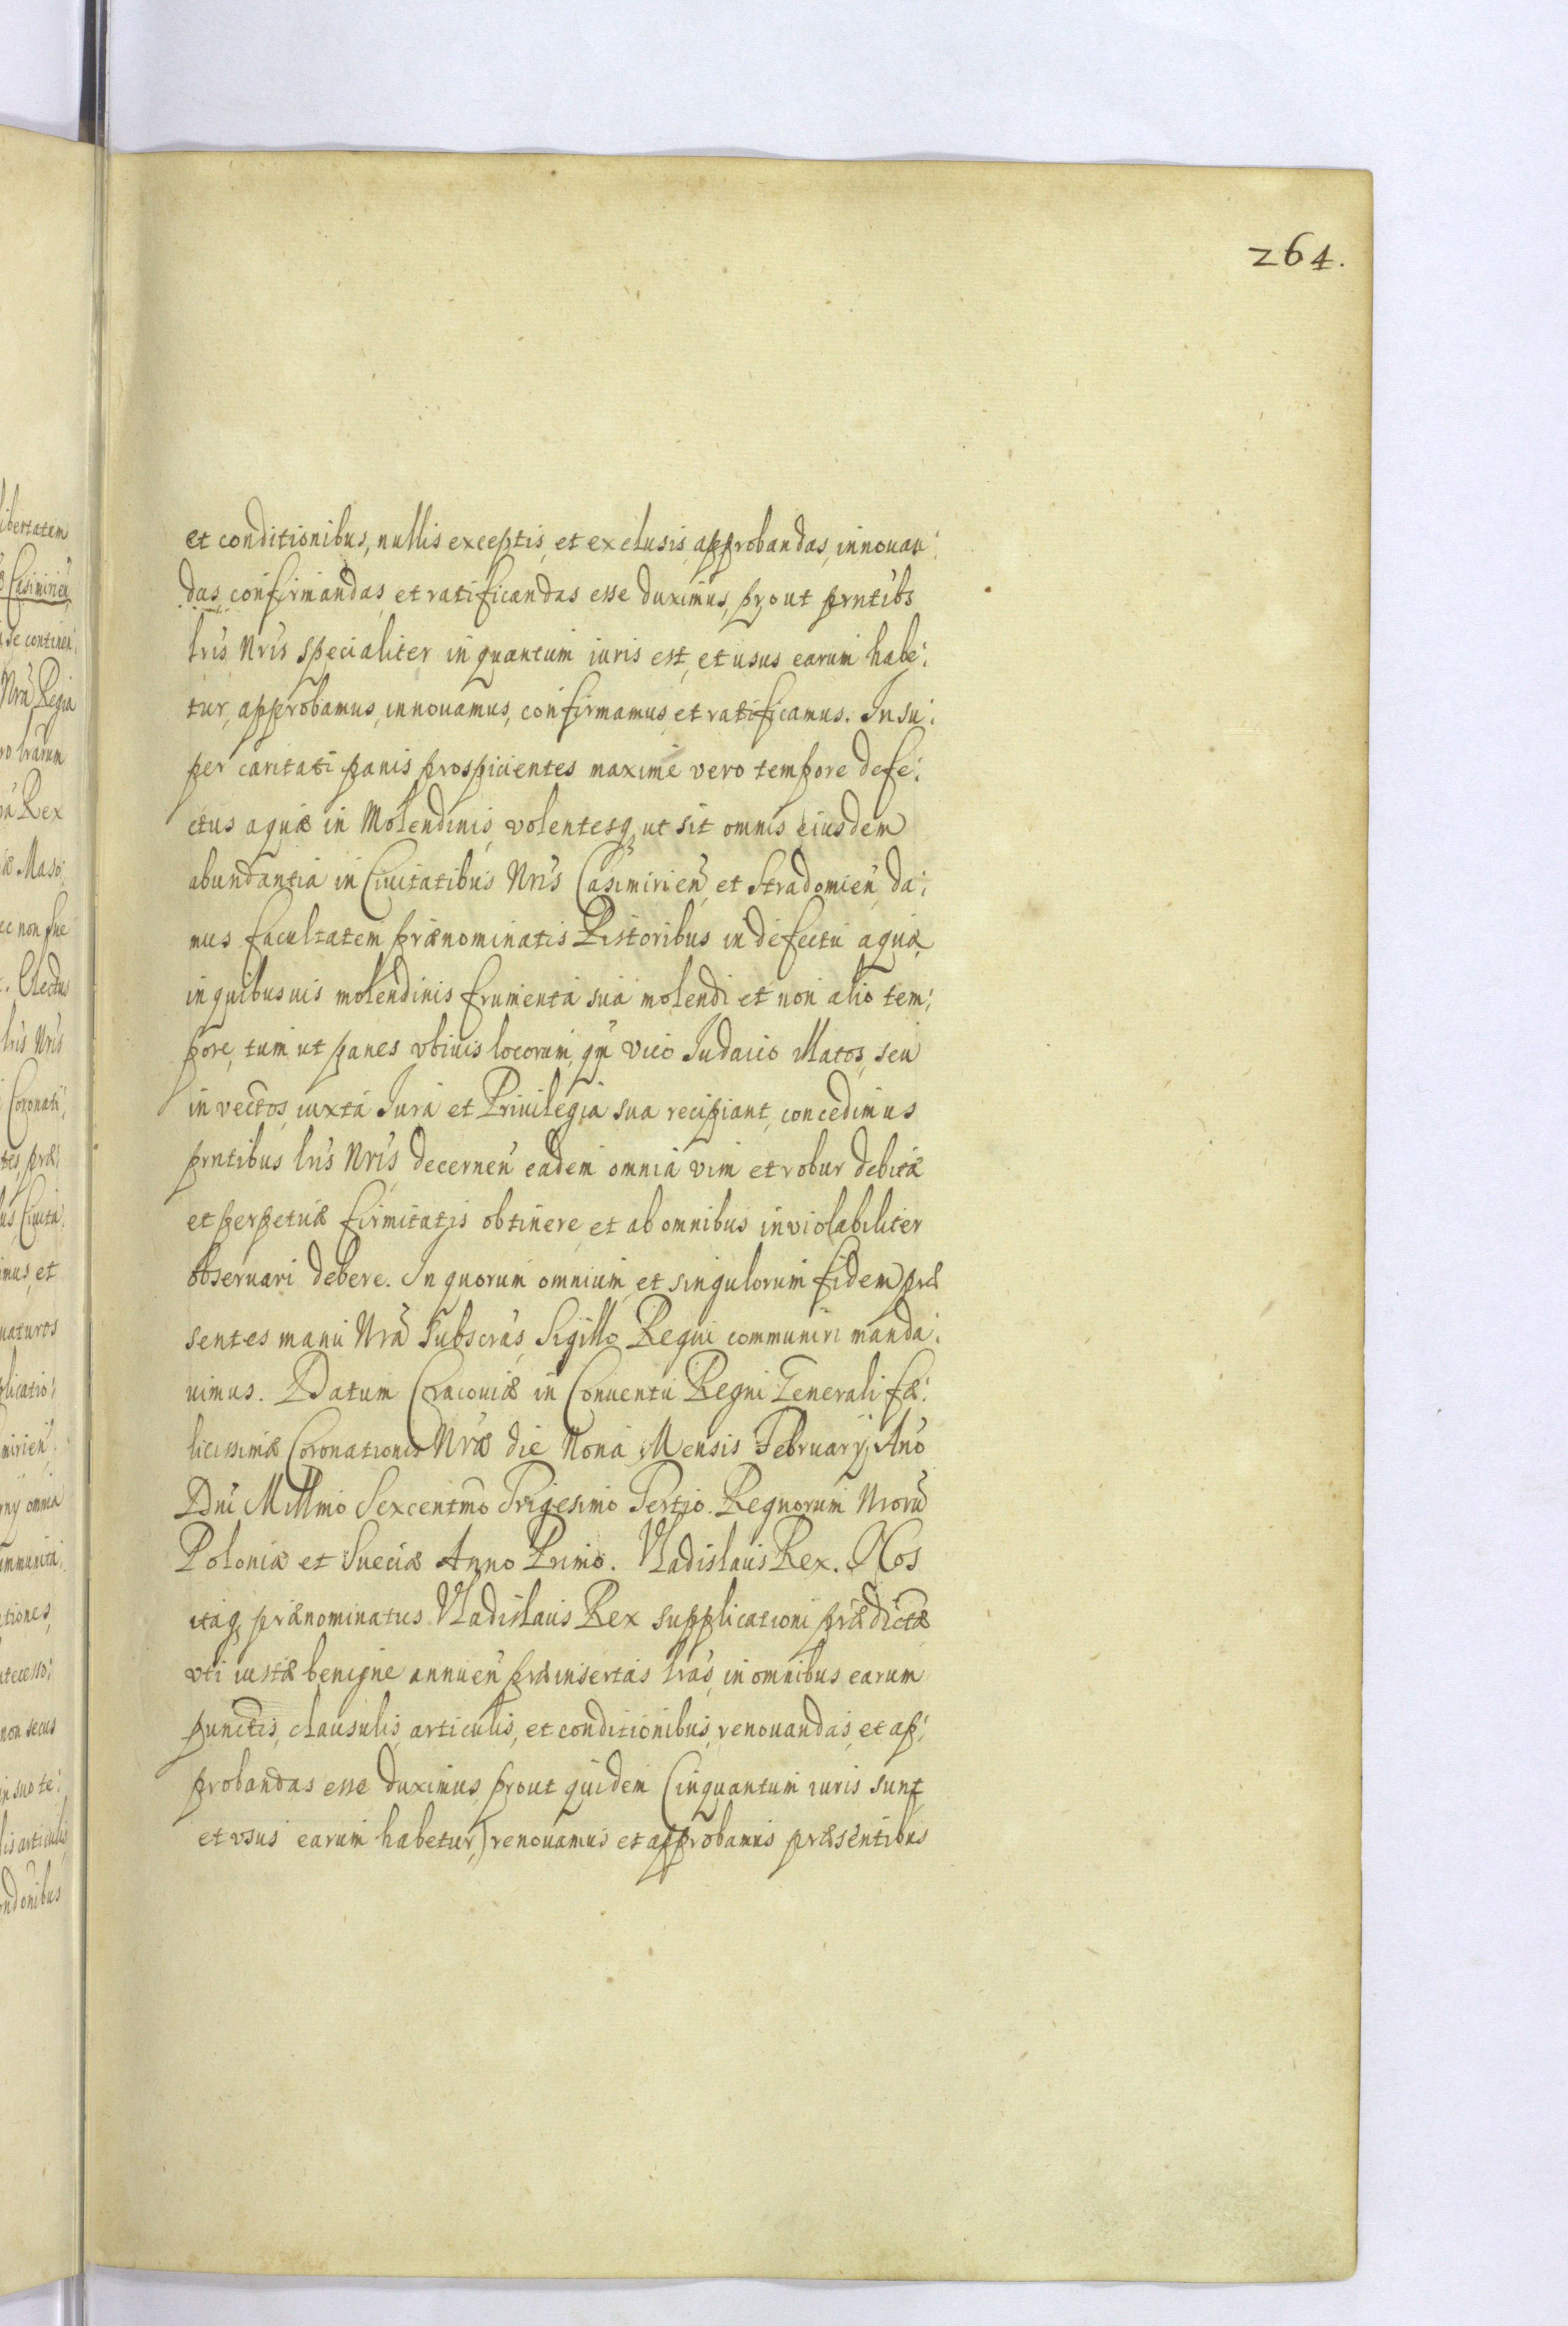 264.
et conditionibus, nullis exceptis, et exclusis, approbandas, innouan:
das, confirmandas, et ratificandas esse duximus, prout pñtibs
lris Nris specialiter in quantum iuris est, et usus earum habe:
tur, approbamus, innouamus, confirmamus, et ratificamus. Insu:
per caritati panis prospicientes maxime vero tempore defe:
ctus aquæ in Molendinis, volentesq, ut sit omnis eiusdem
abundantia in Ciuitatibus Nris Casimirien, et Stradomien, da:
mus facultatem prænominatis Pistoribus in defectu aquæ
in quibusuis molendinis frumenta sua molendi et non alio tem:
pore, tum ut panes vbiuis locorum, qm vico Iudaico Matos, seu
in vectos, iuxta Iura et Priuilegia sua recipiant, concedimus
pñtibus lris Nris, decernen eadem omnia vim et robur debitæ
et perpetuæ firmitatis obtinere, et ab omnibus inviolabiliter
obseruari debere. In quorum omnium, et singulorum fidem præ
sentes manu Nra Subscras, Sigillo Regni communiri manda:
uimus. Datum Cracouiæ in Conuentu Regni Generali fæ:
licissimæ Coronationis Nræ die Nona Mensis February, Ano
Dni Millmo Sexcentmo Trigesimo Tertio. Regnorum Nrorũ
Poloniæ et Sueciæ Anno Primo. Vladislaus Rex. Nos
itaq, prænominatus Vladislaus Rex supplicationi prædictæ,
vti iustæ benigne annuen præinsertas lras, in omnibus earum
punctis, clausulis, articulis, et conditionibus, renouandas, et ap:
probandas esse duximus, prout quidem (inquantum iuris sunt,
et vsus earum habetur,) renouamus et approbamus præsentibus
libertatem
Casimirien
se continen:
Nra Regia
Rex
Maso:
Electus
lris Nris
Coronati:
Ciuita: